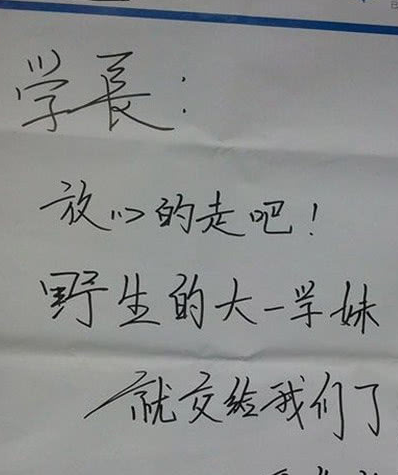 学長：
放心的走吧！
野生的大一学妹
就交给我们了